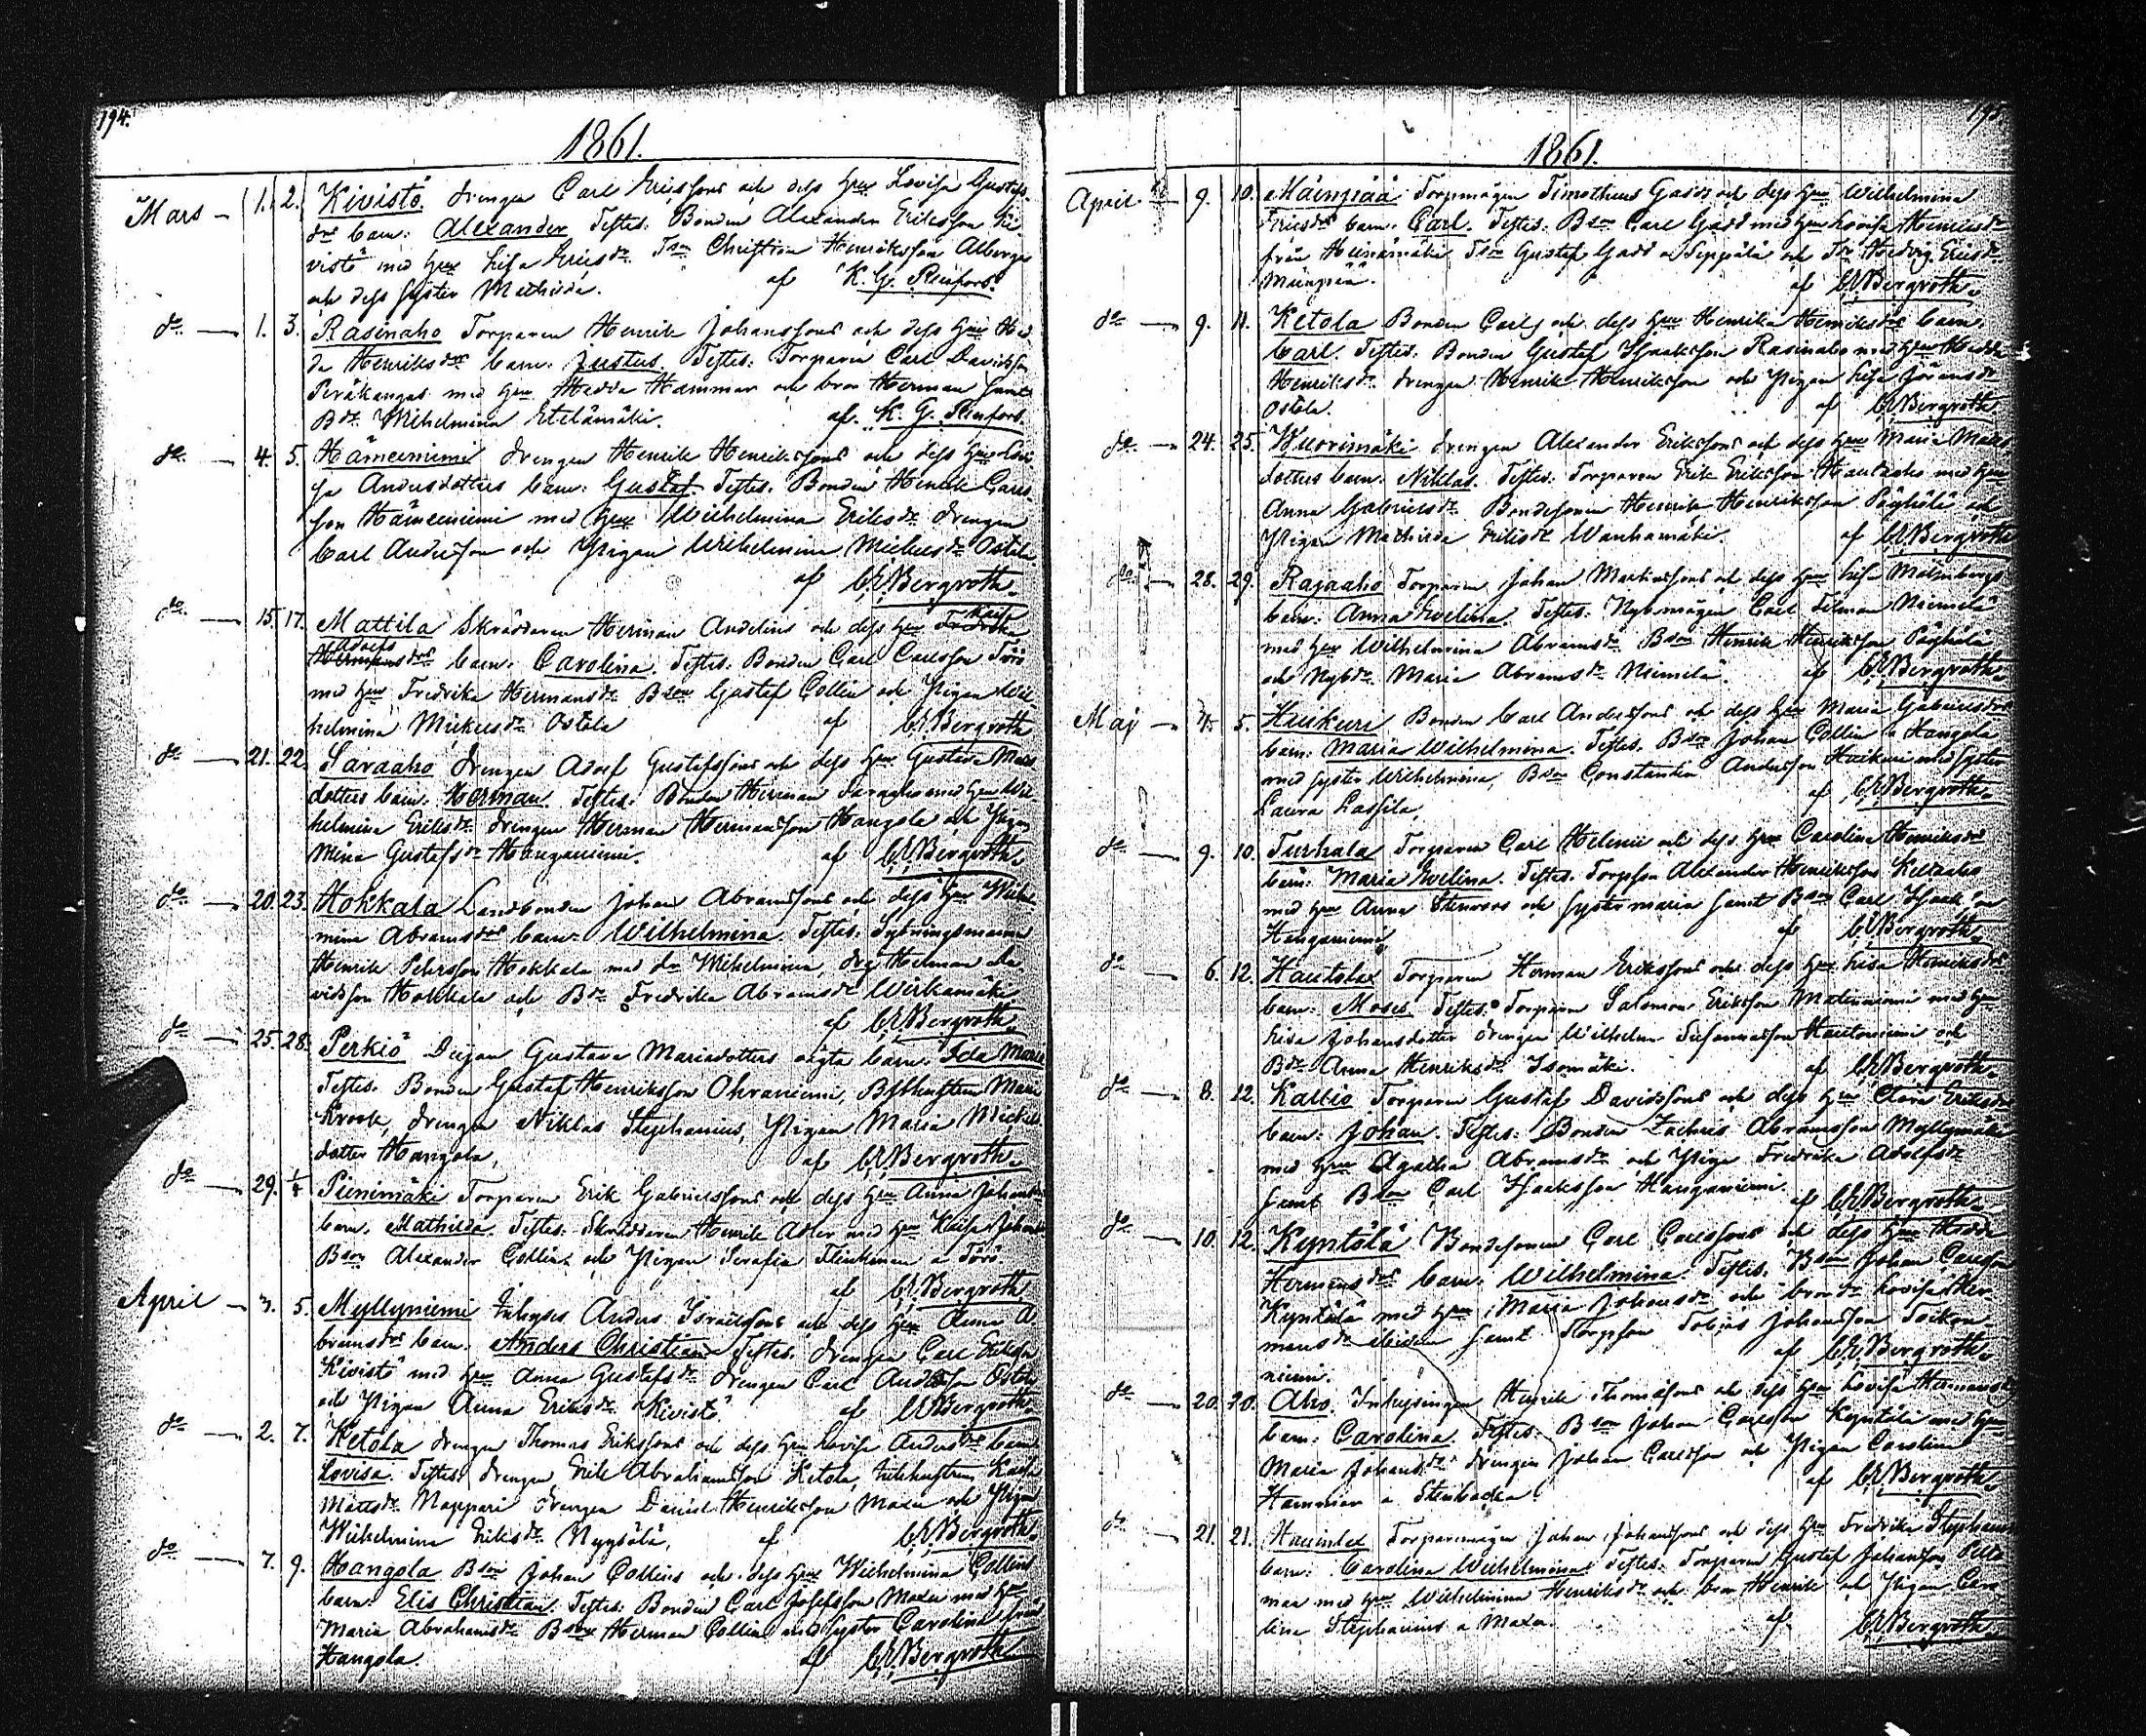 194.
1861.
Mars - 1. 2. Kivistö drengen Carl Ericssons och dess hru Lovisa Gustafs
drs barn: Alexander Testes: Bonden Alexander Eriksson Ki
vistö med hru Lisa Ericsdr Tson Christian Henriksson Alberga
och dess syster Mathilda. af K. G. Renfors.
do — 1. 3. Rasinaho Torparen Henrik Johanssons och dess hru Hed
da Henriksdrs barn: Justus. Testes: Torparen Carl Davidsson
Peräkangas med hru Hedda Hammar och bror Herman samt
Bdr Wilhelmina Etelämäki. af K. G. Renfors.
do — 4. 5. Hämeeniemi drengen Henrik Henrikssons och dess hru Lovi
sa Andersdotters barn: Gustaf. Testes: Bonden Henrik Carls
son Hämeeniemi med hru Wilhelmina Eriksdr drengen
Carl Andersson och Pigan Wilhelmina Mickelsdr Ostola
af Bergroth.
do — 15. 17. Mattila Skräddaren Herman Andelius och dess hru
barn: Carolina. Testes: Bonden Carl Carlsson Törö
med hru Fredrika Hermansdr Bson Gustaf Collin och Pigan Wil
helmina Mickelsdr Ostola af Bergroth
do — 21. 22. Saraaho drengen Adolf Gustafssons och dess hru Gustava Matts
dotters barn: Herman. Testes: Bonden Herman Saraaho med hru Wil
helmina Eriksdr drengen Herman Hermansson Hangola och Pigan
Mina Gustafsdr Hanganiemi. af Bergroth.
do — 20. 23. Hokkala Landbonden Johan Abramssons och dess hru Wilhel
mina Abramsdrs barn Wilhelmina Testes: Sytningsmannen
Henrik Petersson Hokkala med dr Wilhelmina, drg Herman Da
vidsson Hokkala och Bdr Fredrika Abramsdr Wirkamäki
af Bergroth.
do — 25. 28. Perkiö Deijan Gustava Mariadotters oägta barn: Ida Maria
Testes: Bonden Gustaf Henriksson Ohraniemi, Maria
Krook, drengen Niklas Stephanius, Pigan Maria Mickels
dotter Hangola, af Bergroth.
do — 29. 1/4 Pienimäki Torparen Erik Gabrielssons och dess hru Anna Johansdrs
barn. Mathilda. Testes: Skräddaren Henrik Adler med hru Kaisa Johansdr
Bson Alexander Collin och Pigan Serafia Flinkman a Törö.
af Bergroth
April - 3. 5. Myllyniemi Inhyses Anders Israelssons och dess hru Anna A
bramsdrs barn. Anders Christian Testes: drengen Carl Eriksson
Kivistö med hru Anna Gustafsdr drengen Carl Andersson Ostola
och Pigan Anna Eriksdr Kivistö. af Bergroth.
do — 2. 7. Ketola drengen Thomas Erikssons och dess hru Lovisa Andersdrs barn
Lovisa. Testes: drengen Erik Abrahamsson Ketola, Inhhustrun Kaisa
Mattsdr Nappari drengen Daniel Henriksson Maxa och Pigan
Wilhelmina Eriksdr af Bergroth.
do — 7. 9. Hangola Bson Johan Collins och dess hru Wilhelmina Collins
barn. Elis Christian. Testes: Bonden Carl Josefsson Maxa med hru
Maria Abrahamsdr Bson Herman Collin med syster Carolina från
Hangola. af Bergroth.
195.
1861.
April — 9. 10. Mäinpää Torpmågen Timotheus Gadds och dess hru Wilhelmina
Ericsdrs barn. Carl. Testes: Bson Carl Gadd med hru Lovisa Henricsdr
från Heinämäki Tson Gustaf Gadd a Seppälä och Tdr Hedvig Ericsdr
Mäinpää. af Bergroth.
do — 9. 11. Ketola Bonden Carls och dess hru Henrika Henriksdrs barn.
Carl. Testes: Bonden Gustaf Isaaksson Rasinaho med hru Hedda
Henriksdr drengen Henrik Henriksson och Pigan Lisa Jöransdr
Ostola. af Bergroth
do — 24. 25. Wuorimäki drengen Alexander Erikssons och dess hru Maria Matts
dotters barn. Niklas. Testes: Torparen Erik Eriksson Hautaaho med hru
Anna Gabrielsdr Bondesonen Henrik Henriksson Pöyhölä och
Pigan Mathilda Eriksdr Wanhamäki. af Bergroth
do — 28. 29. Rajaaho Torparen Johan Martinssons och dess hru Lisa
barn: Anna Evelina. Testes: Nybmågen Carl Niemelä
med hru Wilhelmina Abramsdr Bson Henrik Henriksson Pöyhölä
och Nybdr Maria Abramsdr Niemelä. af Bergroth.
Maj — 4. 5. Huikuri Bonden Carl Anderssons och dess hru Maria Gabrielsdrs
barn: Maria Wilhelmina. Testes: Bson Johan Collin a Hangola
med syster Wilhelmina, Bson Constantin Andersson Huikuri med syster
Laura Lassila, af Bergroth.
do — 9. 10. Turhala Torparen Carl Helenii och dess hru Carolina Henriksdrs
barn: Maria Evelina. Testes: Torpson Alexander Henriksson Keltaaho
med hru Anna Stenroos och syster Maria samt Bson Carl Isaaksson
Hanganiemi af Bergroth.
do — 6. 12. Hautala Torparen Herman Erikssons och dess hru Lisa Henriksdrs
barn: Moses. Testes: Torparen Salomon Eriksson med hru
Lisa Johansdotter drengen Wilhelm Hautaniemi och
Bdr Anna Henriksdr Isomäki. af Bergroth.
do — 8. 12. Kallio Torparen Gustaf Davidssons och dess hru Clara Eriksdrs
barn: Johan. Testes: Bonden Zachris Abramsson Myllymäki
med hru Agatha Abramsdr och Piga Fredrika Adolfsdr
samt Bson Carl Isaaksson Hanganiemi. af Bergroth.
do — 10. 12. Kyntölä Bondesonen Carl Carlssons och dess hru Hedda
Hermansdrs barn. Wilhelmina. Testes: Bson Johan Carlsson
Kyntölä med hru Maria Johansdr och Lovisa Her
mansdr samt Torpson Tobias Johansson Toikon-
niemi. af Bergroth.
do — 20. 20. Aho. Inhysingen Henrik Thomassons och dess hru Lovisa Hermansdrs
barn: Carolina. Testes: Bson Johan Carlsson Kyntölä med hru
Maria Johansdr drengen Johan Carlsson och Pigan Carolina
Hammar a Stenbacka. af Bergroth.
do — 21. 21. Torparmågen Johan Johanssons och dess hru Fredrika
barn: Carolina Wilhelmina. Testes: Torparen Gustaf Johansson
maa med hru Wilhelmina Henriksdr och bror Henrik och Pigan Caro
lina Stephanius a Maxa. af Bergroth.